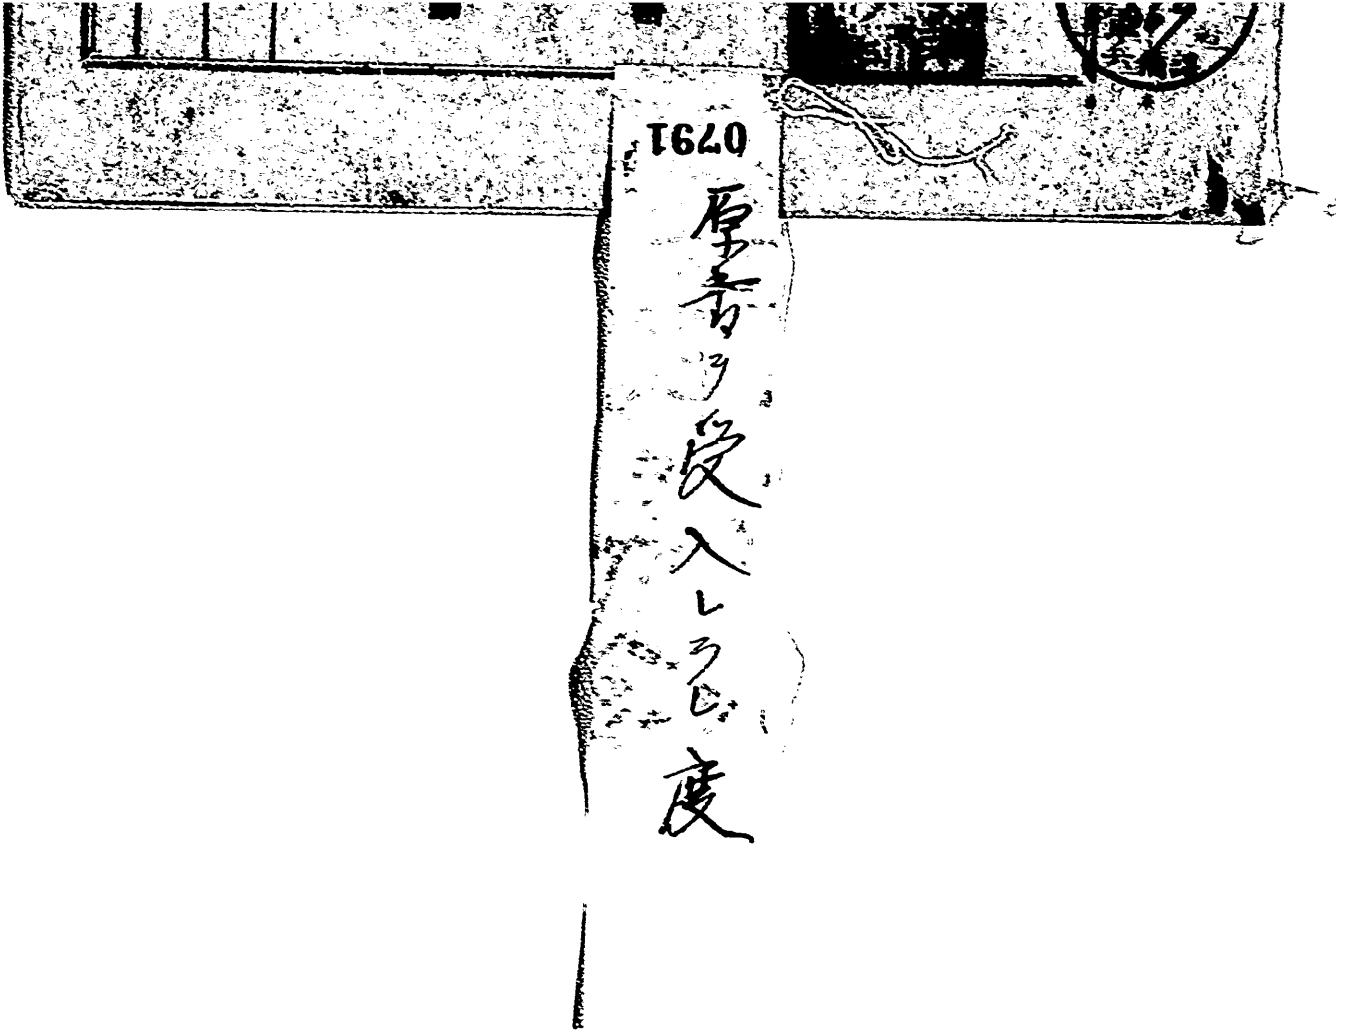 0791
原書ヲ受入レラレ度